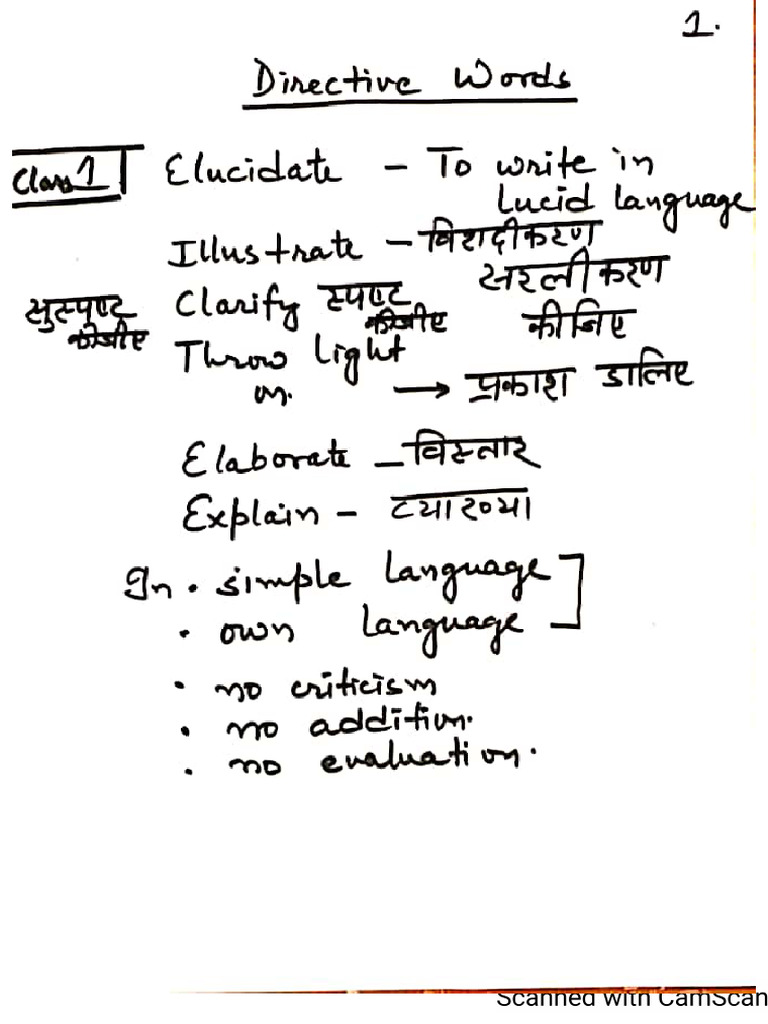 1.
Directive Words
Class 1 Elucidate - To write in
Lucid language
Illustrate - विशदीकरण
सरलीकरण
सुस्पष्ट Clarify स्पष्ट
कीजीए कीजीए कीजिए
Throw light
on. → प्रकाश डालिए
Elaborate - विस्तार
Explain - व्याख्या
In • simple language
• own language
• no criticism
• no addition.
• no evaluation.
Scanned with CamScan